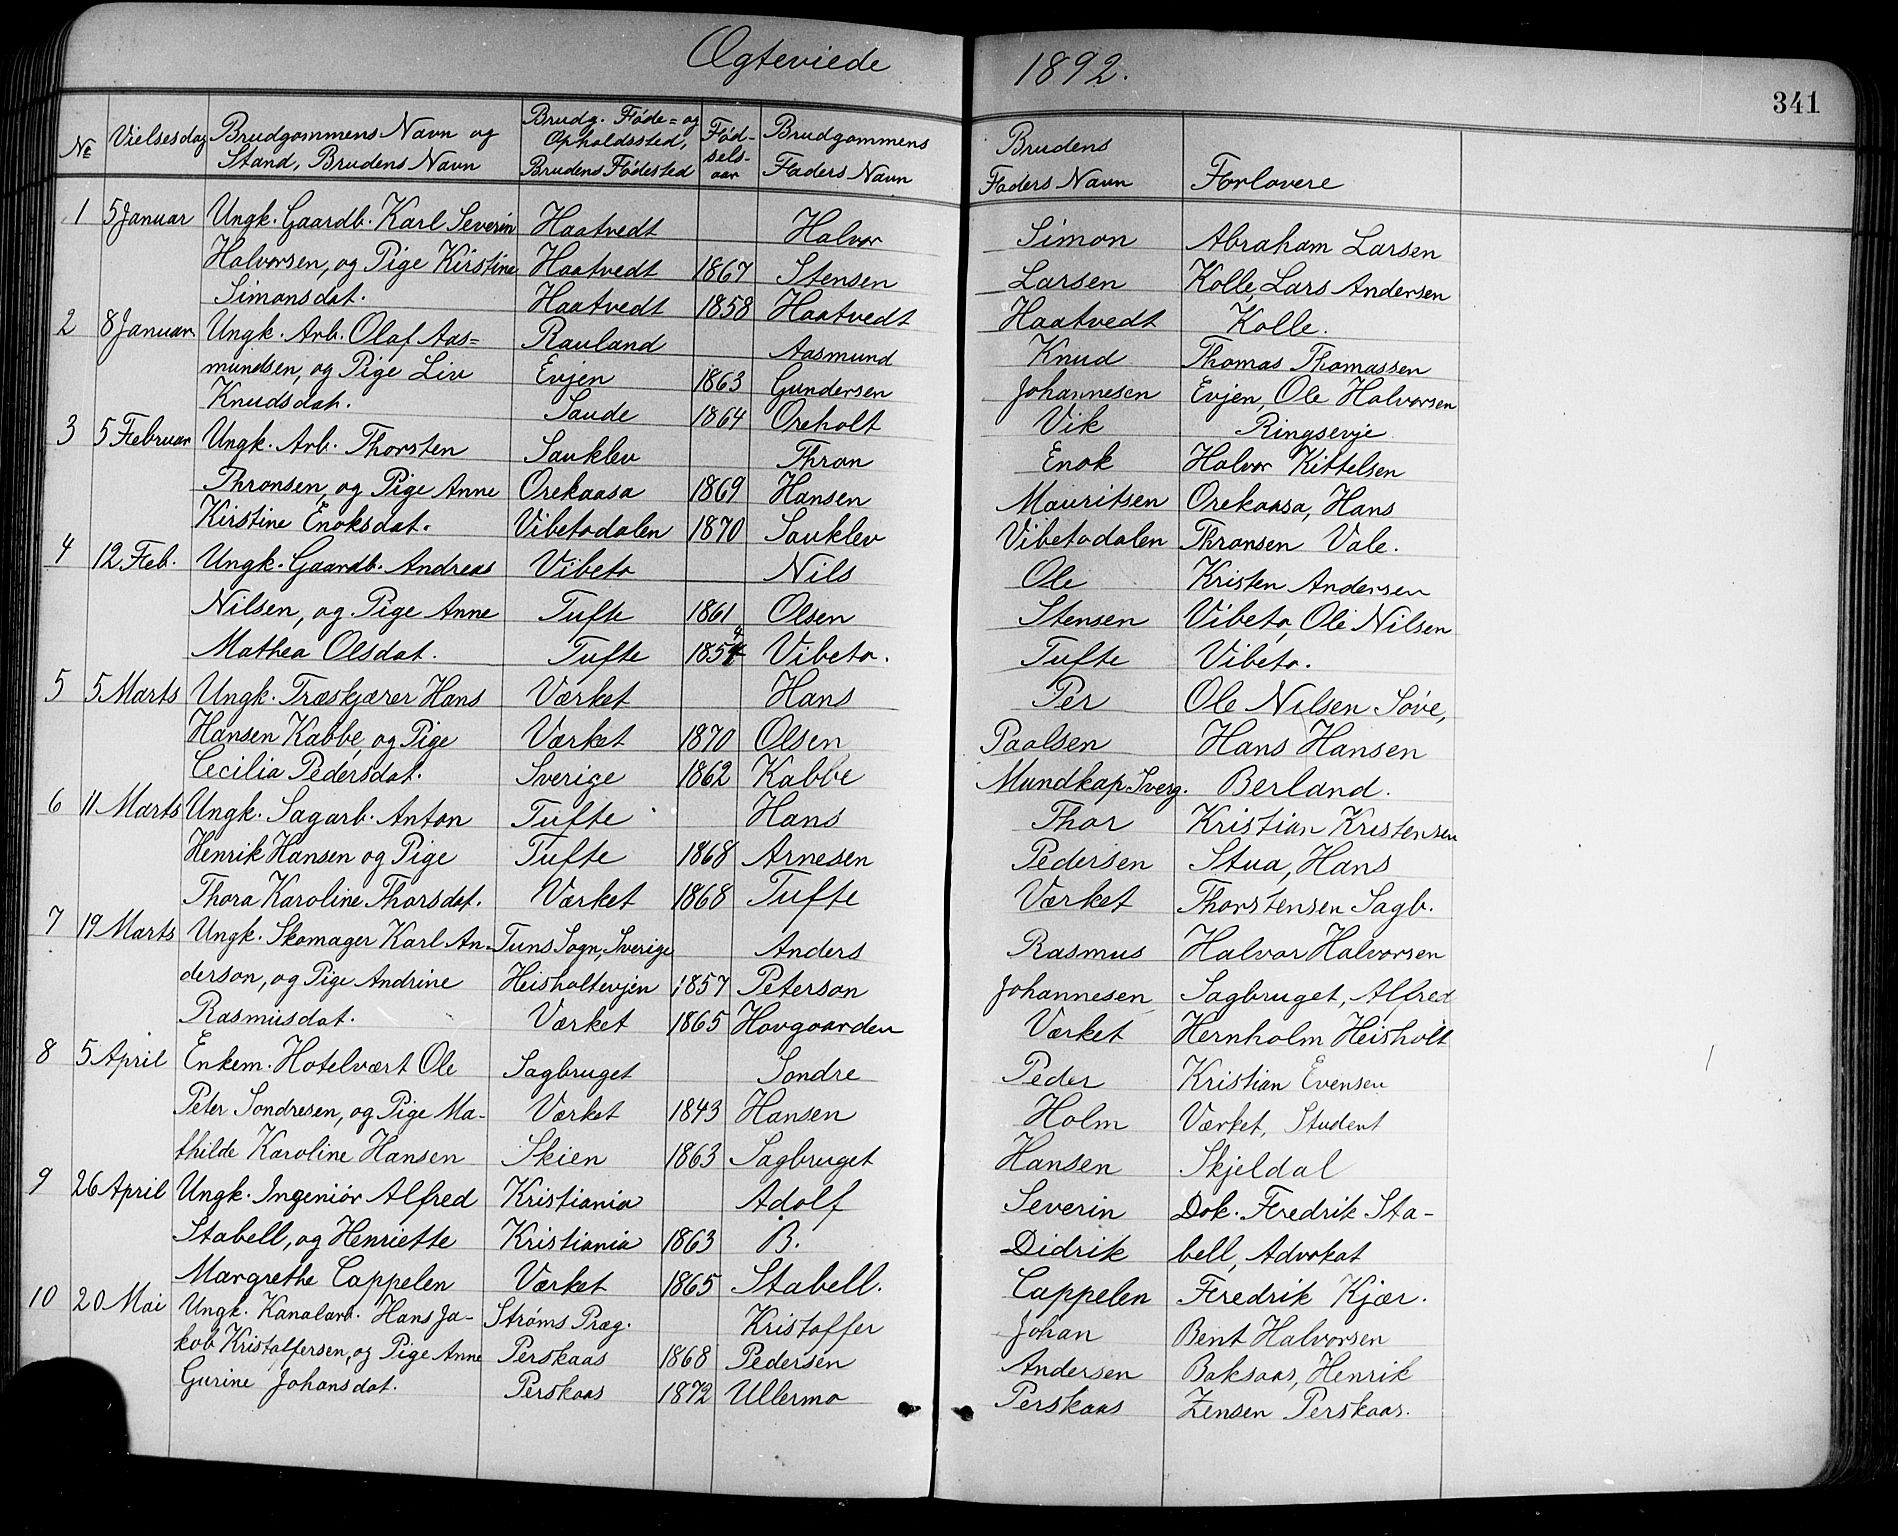 Ægteviede 1892.
341
No Vielsesdag Brudgommens Navn og Stand, Brudens Navn Brudg. Føde= og Opholdssted, Brudens Fødested Fødselsaar Brudgommens Faders Navn Brudens Faders Navn Forlovere
1 5 Januar Ungk. Gaardb. Karl Severin Haatvedt Halvor Simon Abraham Larsen
Halvorsen, og Pige Kirstine Haatvedt 1867 Stensen Larsen Kolle, Lars Andersen
Simonsdat. Haatvedt 1858 Haatvedt Haatvedt Kolle.
2 8 Januar Ungk. Arb. Olaf Aas= Rauland Aasmund Knud Thomas Thomassen
mundsen, og Pige Liv Evjen 1863 Gundersen Johannesen Evjen, Ole Halvorsen
Knudsdat. Saude 1864 Oreholt Vik Ringsevje
3 5 Februar Ungk. Arb. Thorsten Sauklev Thron Enok Halvor Kittelsen
Thronsen, og Pige Anne Orekaasa 1869 Hansen Mauritsen Orekaasa, Hans
Kirstine Enoksdat. Vibetodalen 1870 Sauklev Vibetodalen Thronsen Vale.
4 12 Feb. Ungk. Gaardb. Andreas Vibeto Nils Ole Kristen Andersen
Nilsen, og Pige Anne Tufte 1861 Olsen Stensen Vibeto, Ole Nilsen
Mathea Olsdat. Tufte 1854 Vibeto. Tufte Vibeto.
5 5 Marts Ungk. Træskjærer Hans Værket Hans Per Ole Nilsen Søve,
Hansen Kabbe, og Pige Værket 1870 Olsen Paalsen Hans Hansen
Cecilia Pedersdat. Sverige 1862 Kabbe Mundkap Sverg. Berland.
6 11 Marts Ungk. Sagarb. Anton Tufte Hans Thor Kristian Kristensen
Henrik Hansen og Pige Tufte 1868 Arnesen Pedersen Stua, Hans
Thora Karoline Thorsdat. Værket 1868 Tufte Værket Thorstensen Sagb.
7 19 Marts Ungk. Skomager Karl An- Tuns Sogn, Sverige Anders Rasmus Halvor Halvorsen
derson, og Pige Andrine Heisholtevjen 1857 Peterson Johannesen Sagbruget, Alfred
Rasmusdat. Værket 1865 Hovgaarden Værket Hernholm Heisholt
8 5 April Enkem. Hotelvært Ole Sagbruget Sondre Peder Kristian Evensen
Peter Sondresen, og Pige Ma- Værket 1843 Hansen Holm Værket, Student
thilde Karoline Hansen Skien 1863 Sagbruget Hansen Skjeldal
9 26 April Ungk. Ingeniør Alfred Kristiania Adolf Severin Dok. Fredrik Sta-
Stabell, og Henriette Kristiania 1863 B. Didrik bell, Advokat
Margrethe Cappelen Værket 1865 Stabell. Cappelen Fredrik Kjær.
10 20 Mai Ungk. Kanalarb. Hans Ja- Strøms Præg. Kristoffer Johan Bent Halvorsen
kob Kristoffersen, og Pige Anne Perskaas 1868 Pedersen Andersen Baksaas, Henrik
Gurine Johansdat. Perskaas 1872 Ullermo Perskaas Zensen Perskaas.